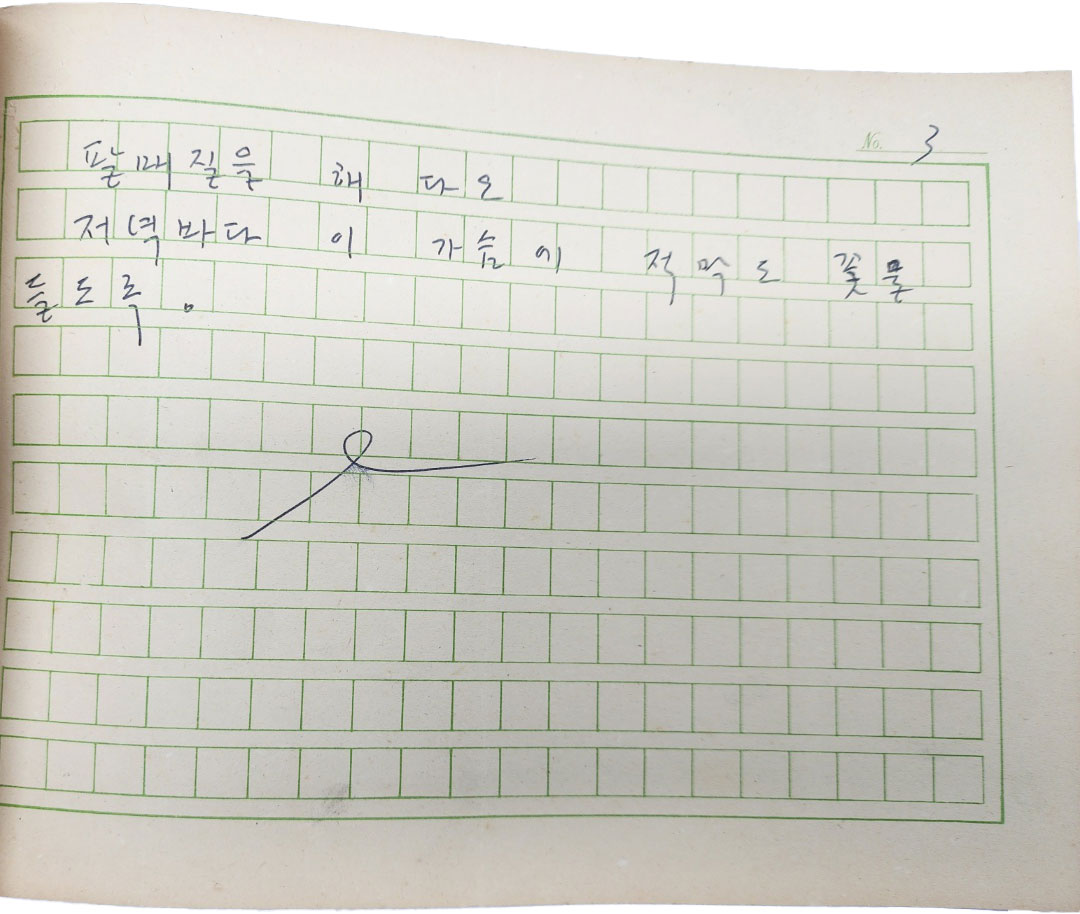 No. 3
팔매질을 해 다오
저녁바다 이 가슴에 적막도 꽃물
들도록。